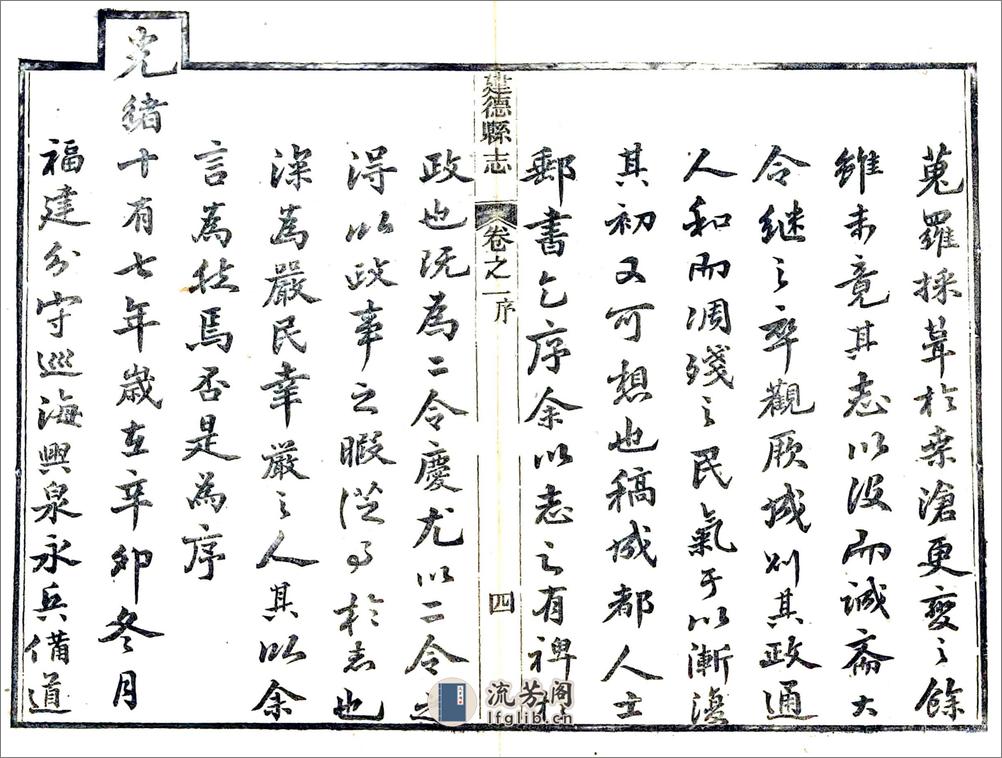 蒐羅採葺於桑滄更變之餘
雖未竟其志以沒而誠齋大
令繼之卒觀厥成則其政通
人和而凋殘之民氣于以漸復
其初又可想也稿成都人士
郵書乞序余以志之有裨於
政也既為二令慶尤以二令之
得以政事之暇從事於志也
深為嚴民幸嚴之人其以余
言為然焉否是為序
光緒十有七年歲在辛卯冬月
福建分守巡海興泉永兵備道
建德縣志
卷之一序
四
流芳阁
lfglib.cn